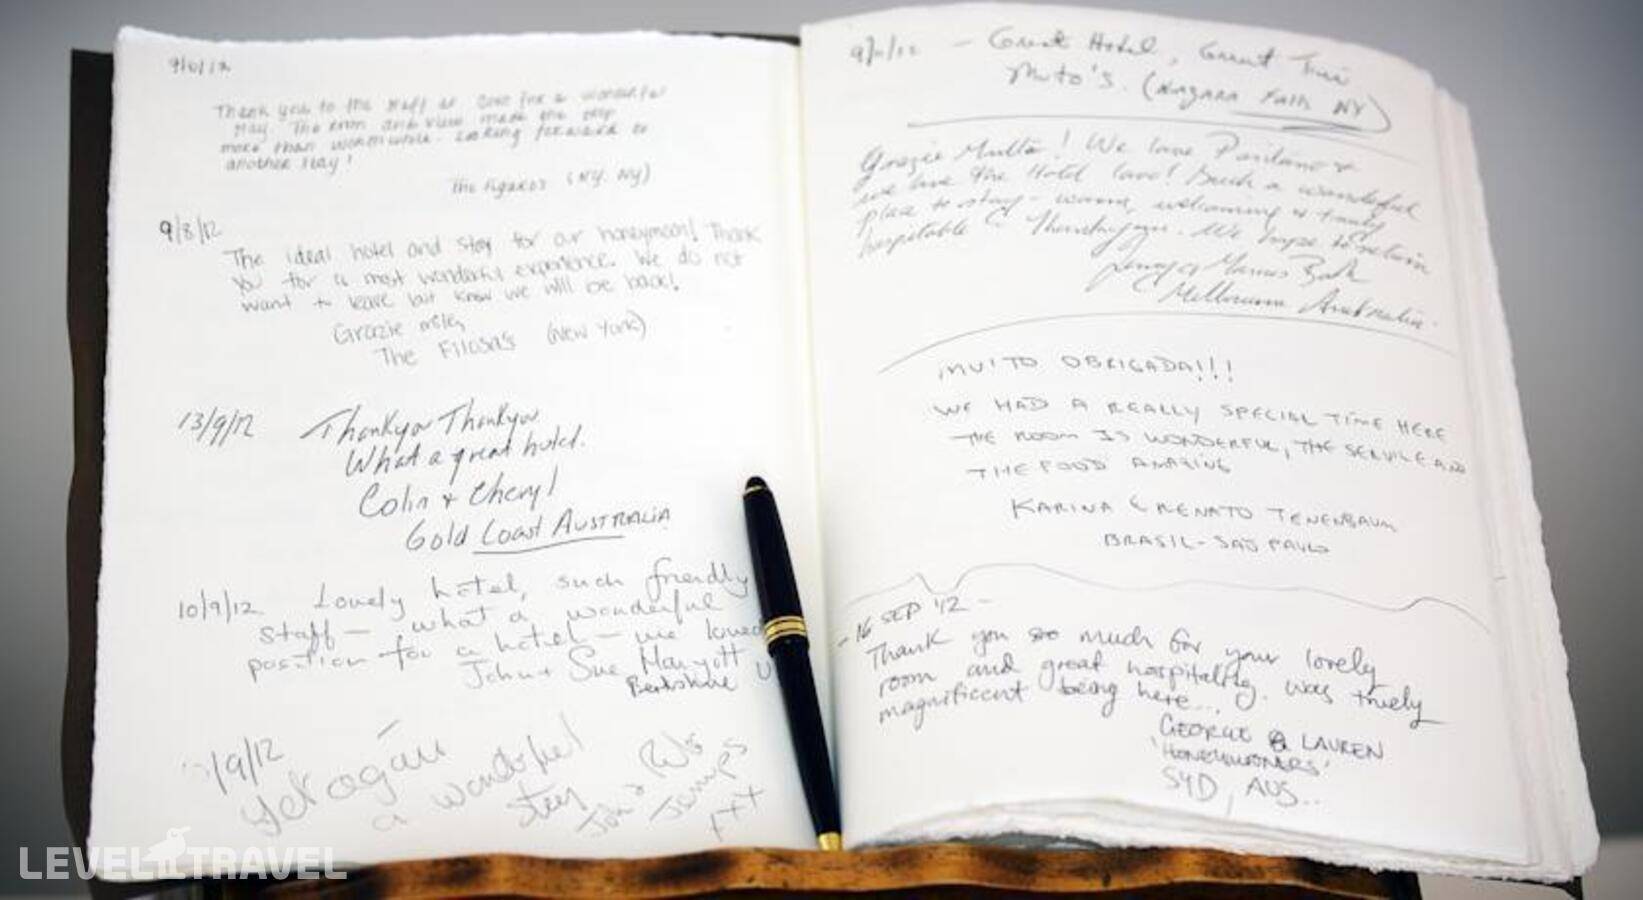 Thank you to the staff at for a wonderful
stay. The room and view made the trip
more than worthwhile. Looking forward to
another stay!
The Figaros (NY, NY)
9/8/12
The ideal hotel and stay for our honeymoon! Thank
You for a most wonderful experience. We do not
want to leave but know we will be back!
Grazie
The Filosa's (New York)
13/9/12
Thankyou Thankyou
What a great hotel.
Colin + Cheryl
Gold Coast AUSTRALIA
10/9/12 Lovely hotel, such friendly
staff - what a wonderful
position for a hotel - we loved
John + Sue Marryott
Berkshire U
/9/12
Yet again
a wonderful
stay
xxx
- Great Hotel, Great
(Niagara Falls NY)
Grazie Multo! We love Positano &
we love the Hotel Such a wonderful
place to stay - warm, welcoming & truly
hospitable Thankyou. We hope to return
Melbourne Australia.
MUITO OBRIGADA!!!
WE HAD A REALLY SPECIAL TIME HERE
THE ROOM IS WONDERFUL, THE SERVICE AND
THE FOOD AMAZING
KARINA & RENATO TENENBAUM
BRASIL - SAO PAULO
- 16 SEP '12 -
Thank you so much for your lovely
room and great hospitality. Was truely
magnificent being here...
GEORGE & LAUREN
'HONEYMOONERS'
SYD, AUS..
LEVEL TRAVEL